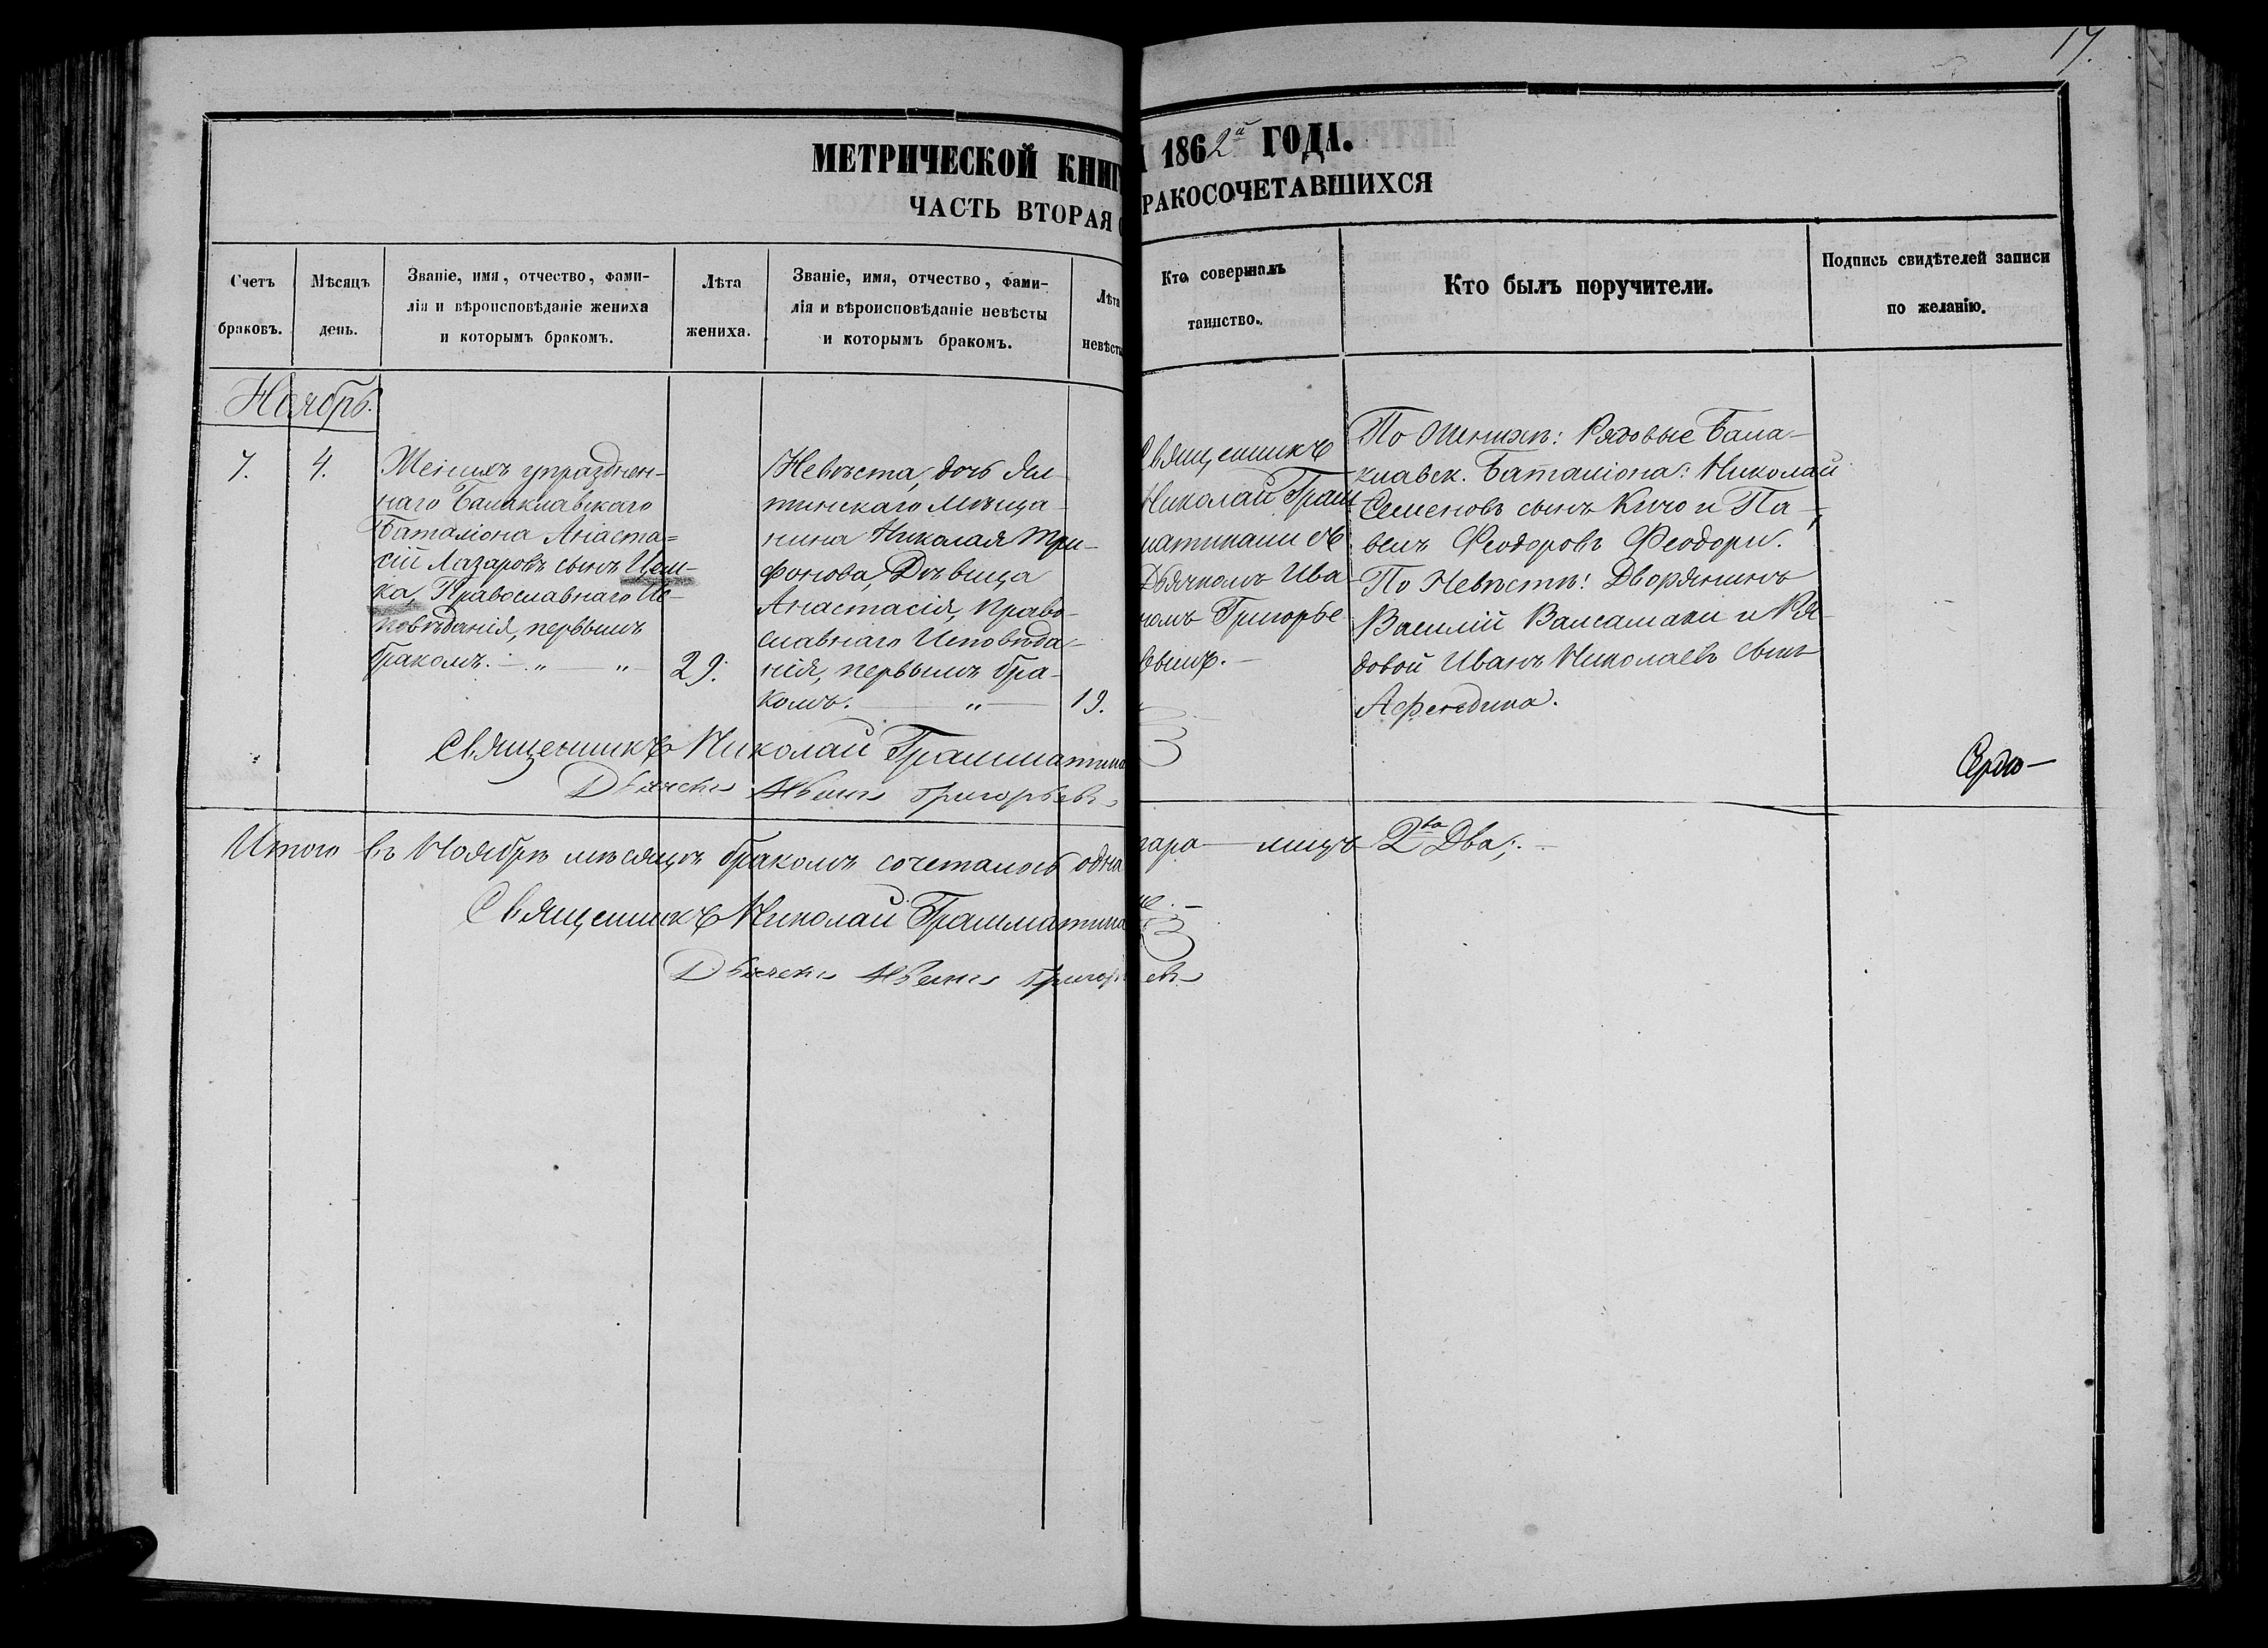 17.
МЕТРИЧЕСКОЙ КНИГ 1862й ГОДА.
ЧАСТЬ ВТОРАЯ РАКОСОЧЕТАВШИХСЯ
Счетъ
браковъ.
Мѣсяцъ
день.
Званіе, имя, отчество, фами-
лія и вѣроисповѣданіе жениха
и которымъ бракомъ.
Лѣта
жениха.
Званіе, имя, отчество, фами-
лія и вѣроисповѣданіе невѣсты
и которымъ бракомъ.
Лѣта
невѣсты
Кто совершалъ
таинство.
Кто былъ поручители.
Подпись свидѣтелей записи
по желанію.
Ноябрь.
7.
4.
Женихъ упразднен-
наго Балаклавскаго
Баталіона Анаста=
сій Лазаровъ сынъ
Православнаго Ис-
повѣданія, первымъ
бракомъ.
29.
Невѣста, дочь Ял-
тинскаго Мѣща-
нина Николая Три-
фонова, Дѣвица
Анастасія, Право-
славнаго Исповѣда-
нія, первымъ бра-
комъ.
19.
Священникъ
Николай Грам
матикати съ
Дьячкомъ Ива
номъ Григорье
вымъ.
По Женихѣ: Рядовые Бала-
клавск. Баталіона: Николай
Семеновъ сынъ Кичо и Па-
велъ Феодоровъ Феодори.
По Невѣстѣ: Дворянинъ
Василій Валсамаки и Ря-
довой Иванъ Николаевъ сынъ
Афендина.
Священникъ Николай Грамматика
Дьячекъ Иванъ Григорьевъ
Итого въ Ноябрѣ мѣсяцѣ бракомъ сочеталось одна пара — лицъ 2ва Два;.
Священникъ Николай Грамматика
Дьячекъ Иванъ Григорьевъ